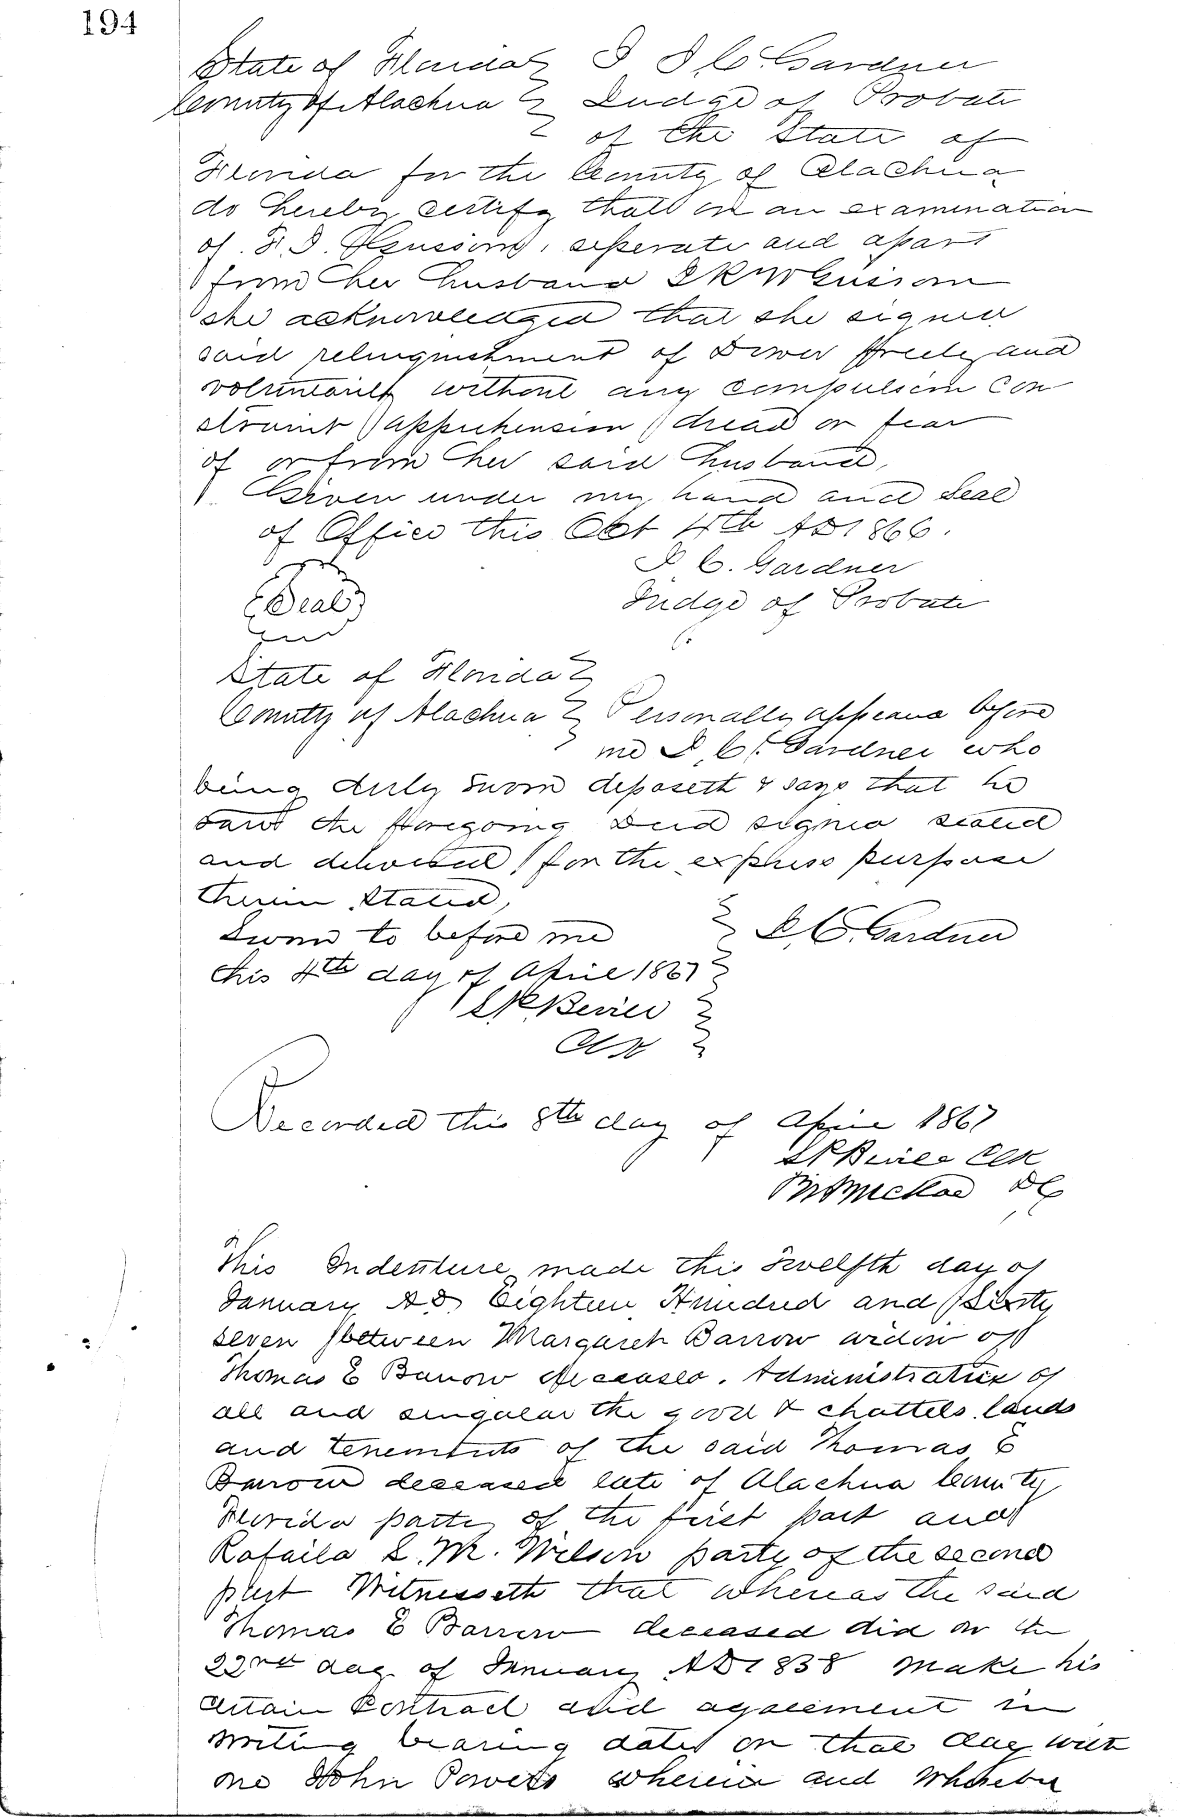 194
State of Florida } I J. C. Gardner
County of Alachua } Judge of Probate
of the State of
Florida for the County of Alachua
do hereby certify that on an examination
of F. I. Gussom, seperate and apart
from her husband J R W Gussom
she acknowledged that she signed
said relinquishment of Dower freely and
voluntarily without any compulsion con
straint apprehension dread or fear
of or from her said husband,
Given under my hand and Seal
of Office this Oct 4th AD 1866.
J. C. Gardner
(Seal)
Judge of Probate
State of Florida }
County of Alachua } Personally appeared before
me J. C. Gardner who
being duly sworn deposeth & says that he
saw the foregoing Deed signed sealed
and delivered for the express purpose
therein stated,
Sworn to before me } J. C. Gardner
this 4th day of April 1867
Bevill
Clk
Recorded this 8th day of April 1867
Bevill Clk
McRae DC
This Indenture made this Twelfth day of
January A.D. Eighteen Hundred and Sixty
seven between Margaret Barrow widow of
Thomas E Barrow deceased. Administratrix of
all and singular the good & chattels lands
and tenements of the said Thomas E
Barrow deceased late of Alachua County
Florida party of the first part and
Rafaila S. M. Wilson party of the second
part Witnesseth that whereas the said
Thomas E Barrow deceased did on the
22nd day of January AD 1838 make his
certain Contract and agreement in
writing bearing date on that day with
one John Powers wherein and whereby